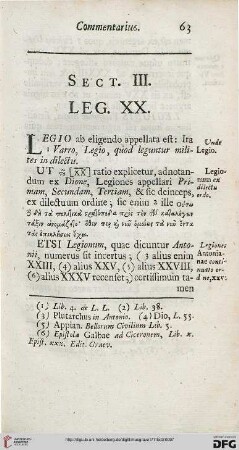 Commentarius. 63
SECT. III.
LEG. XX.
LEGIO ab eligendo appellata est: Ita
(1) Varro, Legio, quod leguntur mili-
tes in dilectu.
Unde
Legio.
UT [XX] ratio explicetur, adnotan-
dum ex Dione, Legiones appellari Pri-
mam, Secundam, Tertiam, & sic deinceps,
ex dilectuum ordine; sic enim 2 ille
Legio-
num ex
dilectu
ordo,
ETSI Legionum, quae dicuntur Anto-
nii, numerus sit incertus; (3 alius enim
XXIII, (4) alius XXV, (5) alius XXVIII,
(6) alius XXXV recenset;) certissimum ta-
men
Legiones
Antonia-
nae conti-
nuato or-
dine, XXV.
(1) Lib. 4. de L. L. (2) Lib. 38.
(3) Plutarchus in Antonio. (4) Dio, L. 53.
(5) Appian. Bellorum Civilium Lib. 5.
(6) Epistola Galbae ad Ciceronem, Lib. x.
Epist. xxx. Edit. Graev.
DFG